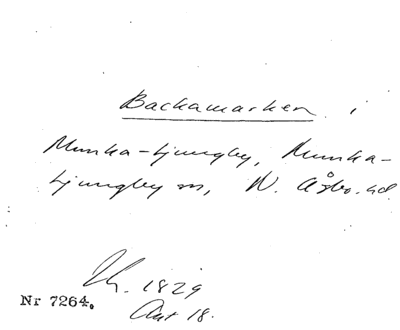 Backamarken i
Munka-Ljungby, Munka-
Ljungby sn, N. Åsbo hd.
1829
Akt 18.
Nr 7264.